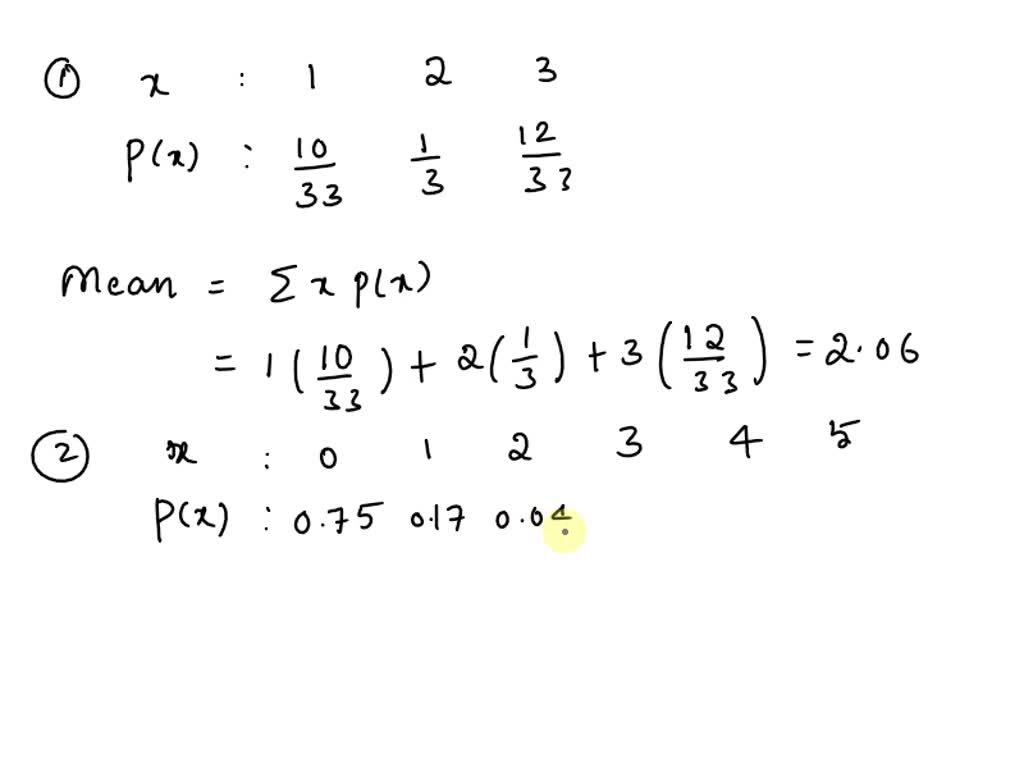 ① x : 1 2 3
P(x) : 10/33 1/3 12/33
Mean = Σ x p(x)
= 1(10/33) + 2(1/3) + 3(12/33) = 2.06
② x : 0 1 2 3 4 5
P(x) : 0.75 0.17 0.04